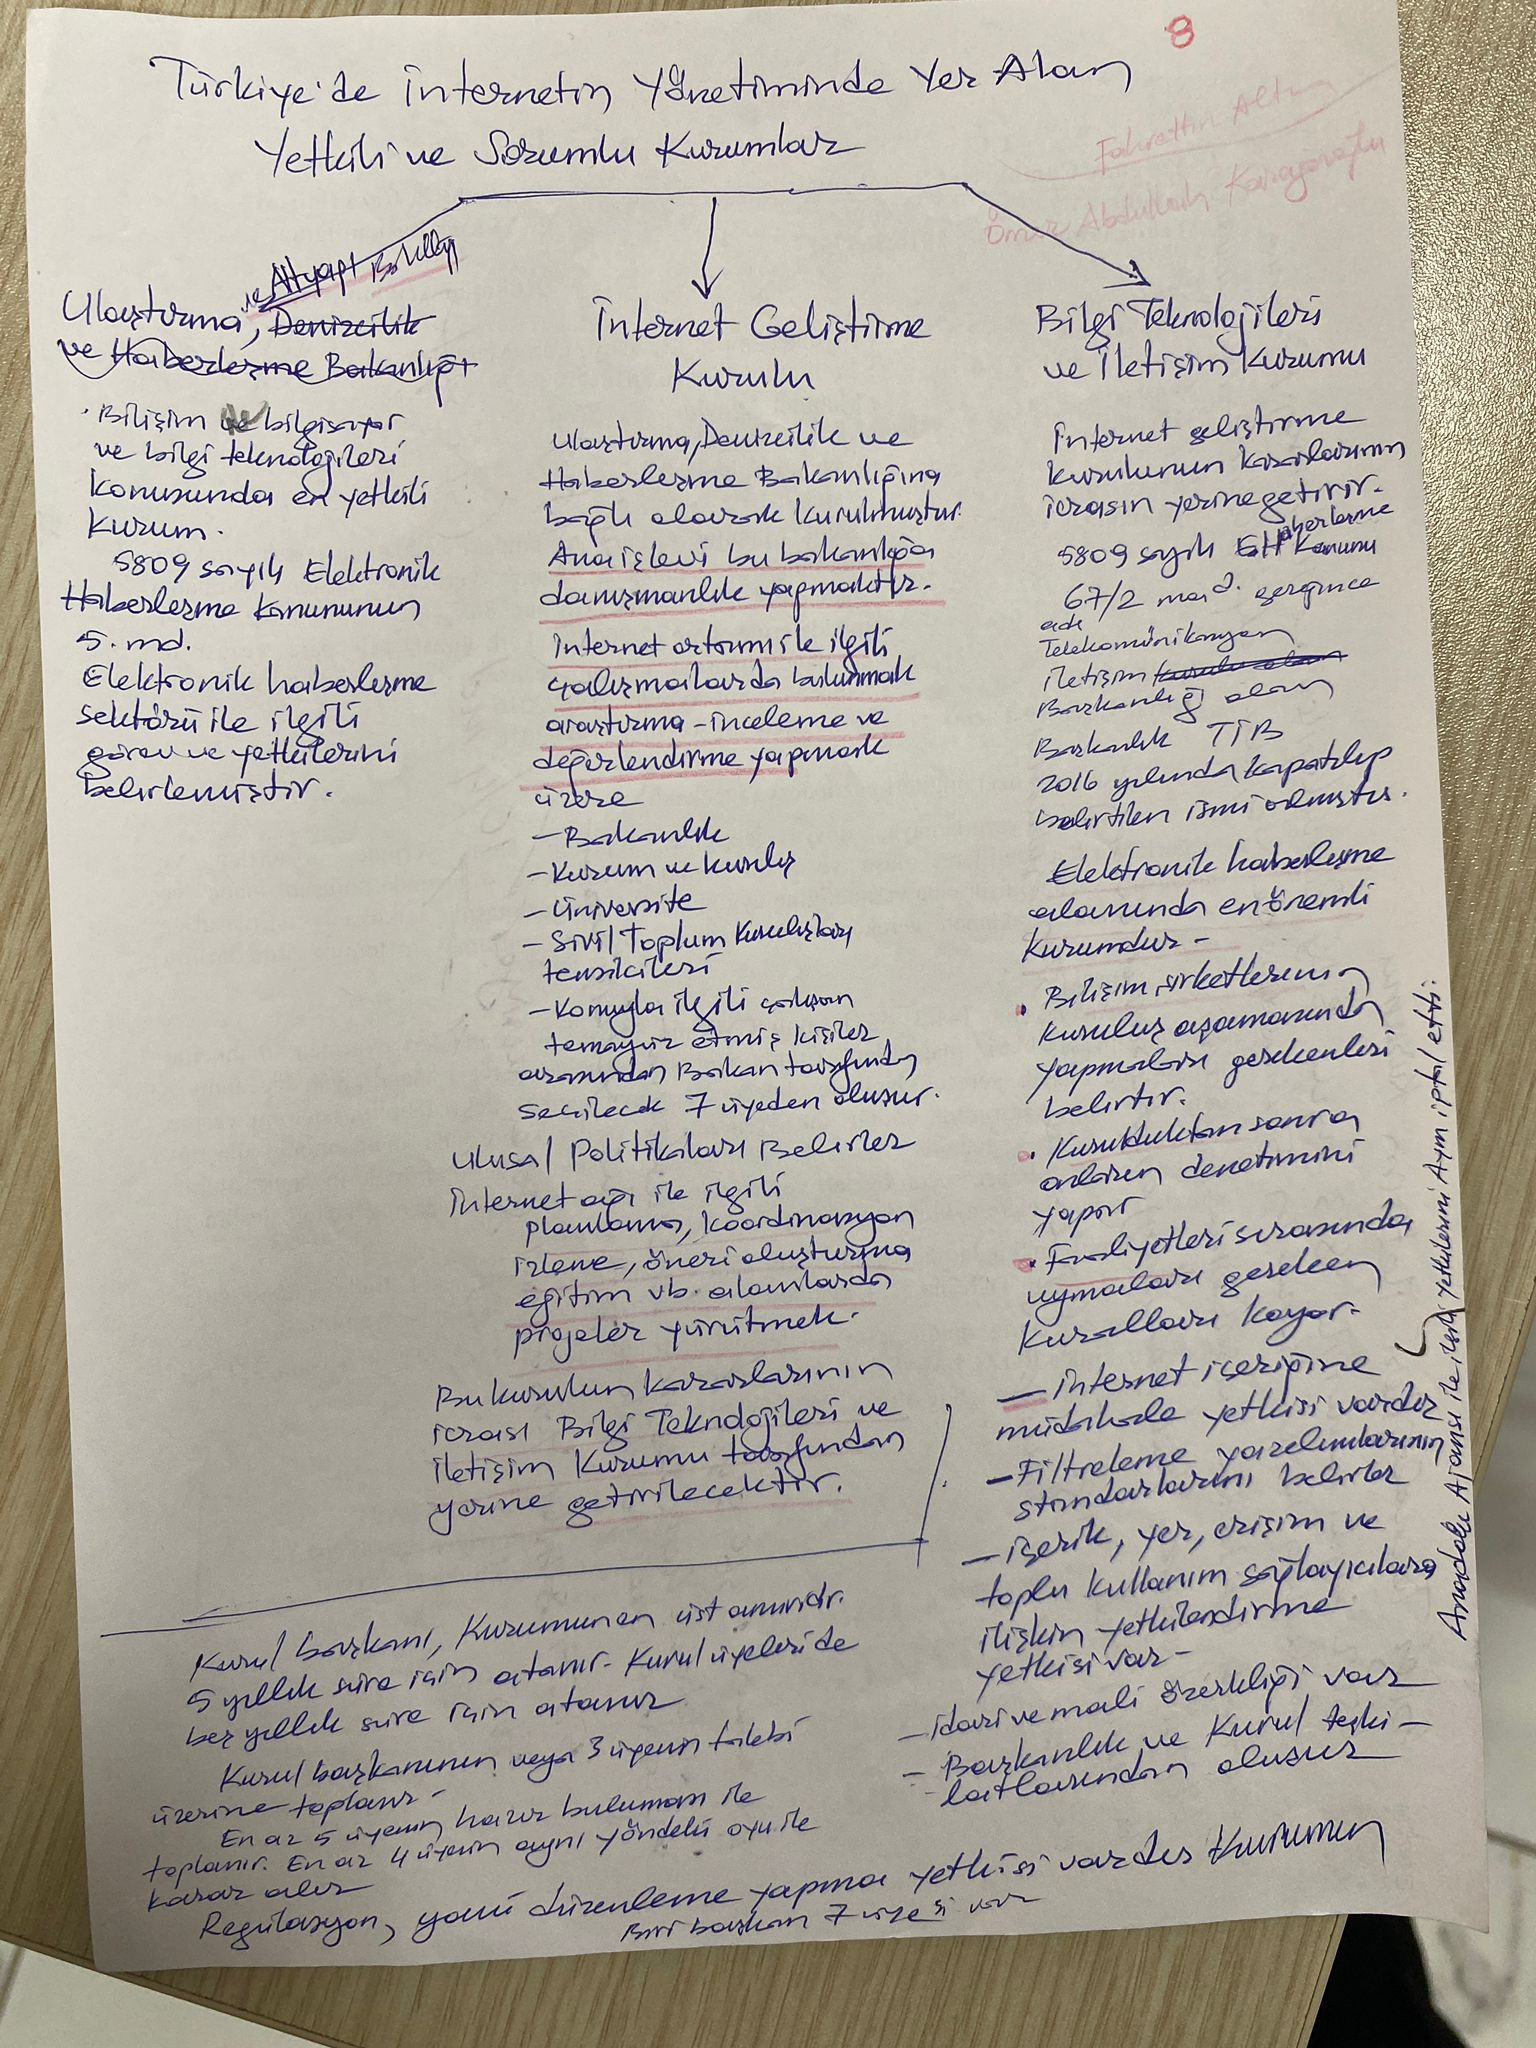 8
Türkiye'de İnternetin Yönetiminde Yer Alan
Yetkili ve Sorumlu Kurumlar
Fahrettin Altun
Ömer Abdullah Karagözoğlu
ve Altyapı Bakanlığı
Ulaştırma, Denizcilik
ve Haberleşme Bakanlığı
· Bilişim ve bilgisayar
ve bilgi teknolojileri
konusunda en yetkili
kurum.
5809 sayılı Elektronik
Haberleşme Kanununun
5. md.
Elektronik haberleşme
sektörü ile ilgili
görev ve yetkilerini
belirlemiştir.
İnternet Geliştirme
Kurulu
Ulaştırma, Denizcilik ve
Haberleşme Bakanlığına
bağlı olarak kurulmuştur.
Ana işlevi bu bakanlığa
danışmanlık yapmaktır.
İnternet ortamı ile ilgili
çalışmalarda bulunmak
araştırma - inceleme ve
değerlendirme yapmak
üzere
- Bakanlık
- Kurum ve kuruluş
- Üniversite
- Sivil Toplum Kuruluşları
temsilcileri
- Konuyla ilgili çalışan
temayüz etmiş kişiler
arasından Bakan tarafından
seçilecek 7 üyeden oluşur.
Ulusal Politikaları Belirler
İnternet ağı ile ilgili
planlama, koordinasyon
izleme, öneri oluşturma
eğitim vb. alanlarda
projeler yürütmek.
Bu kurulun kararlarının
icrası Bilgi Teknolojileri ve
İletişim Kurumu tarafından
yerine getirilecektir.
Bilgi Teknolojileri
ve İletişim Kurumu
İnternet geliştirme
kurulunun kararlarının
icrasın yerine getirir.
5809 sayılı El Haberleşme Kanunu
67/2 mad. gereğince
eski
Telekomünikasyon
iletişim
Başkanlığı olan
Başkanlık TİB
2016 yılında kapatılıp
belirtilen ismi almıştır.
Elektronik haberleşme
alanında en önemli
kurumdur -
· Bilişim şirketlerinin
kuruluş aşamasında
yapmaları gerekenleri
belirtir.
· Kurulduktan sonra
onların denetimini
yapar
· Faaliyetleri sırasında
uymaları gereken
kuralları koyar.
- İnternet içeriğine
müdahale yetkisi vardır
- Filtreleme yazılımlarının
standarlarını belirler
- içerik, yer, erişim ve
toplu kullanım sağlayıcılara
ilişkin yetkilendirme
yetkisi var -
- idari ve mali özerkliği var
- Başkanlık ve Kurul teşki-
latlarından oluşur
Anadolu Ajansı ile ilgili yetkilerini Aym iptal etti:
Kurul başkanı, Kurumun en üst amiridir.
5 yıllık süre için atanır. Kurul üyeleri de
beş yıllık süre için atanır
Kurul başkanının veya 3 üyenin talebi
üzerine toplanır -
En az 5 üyenin hazır bulunması ile
toplanır. En az 4 üyenin aynı yöndeki oyu ile
karar alır
Regülasyon, yani düzenleme yapma yetkisi vardır Kurumun
Biri başkan 7 üyesi var